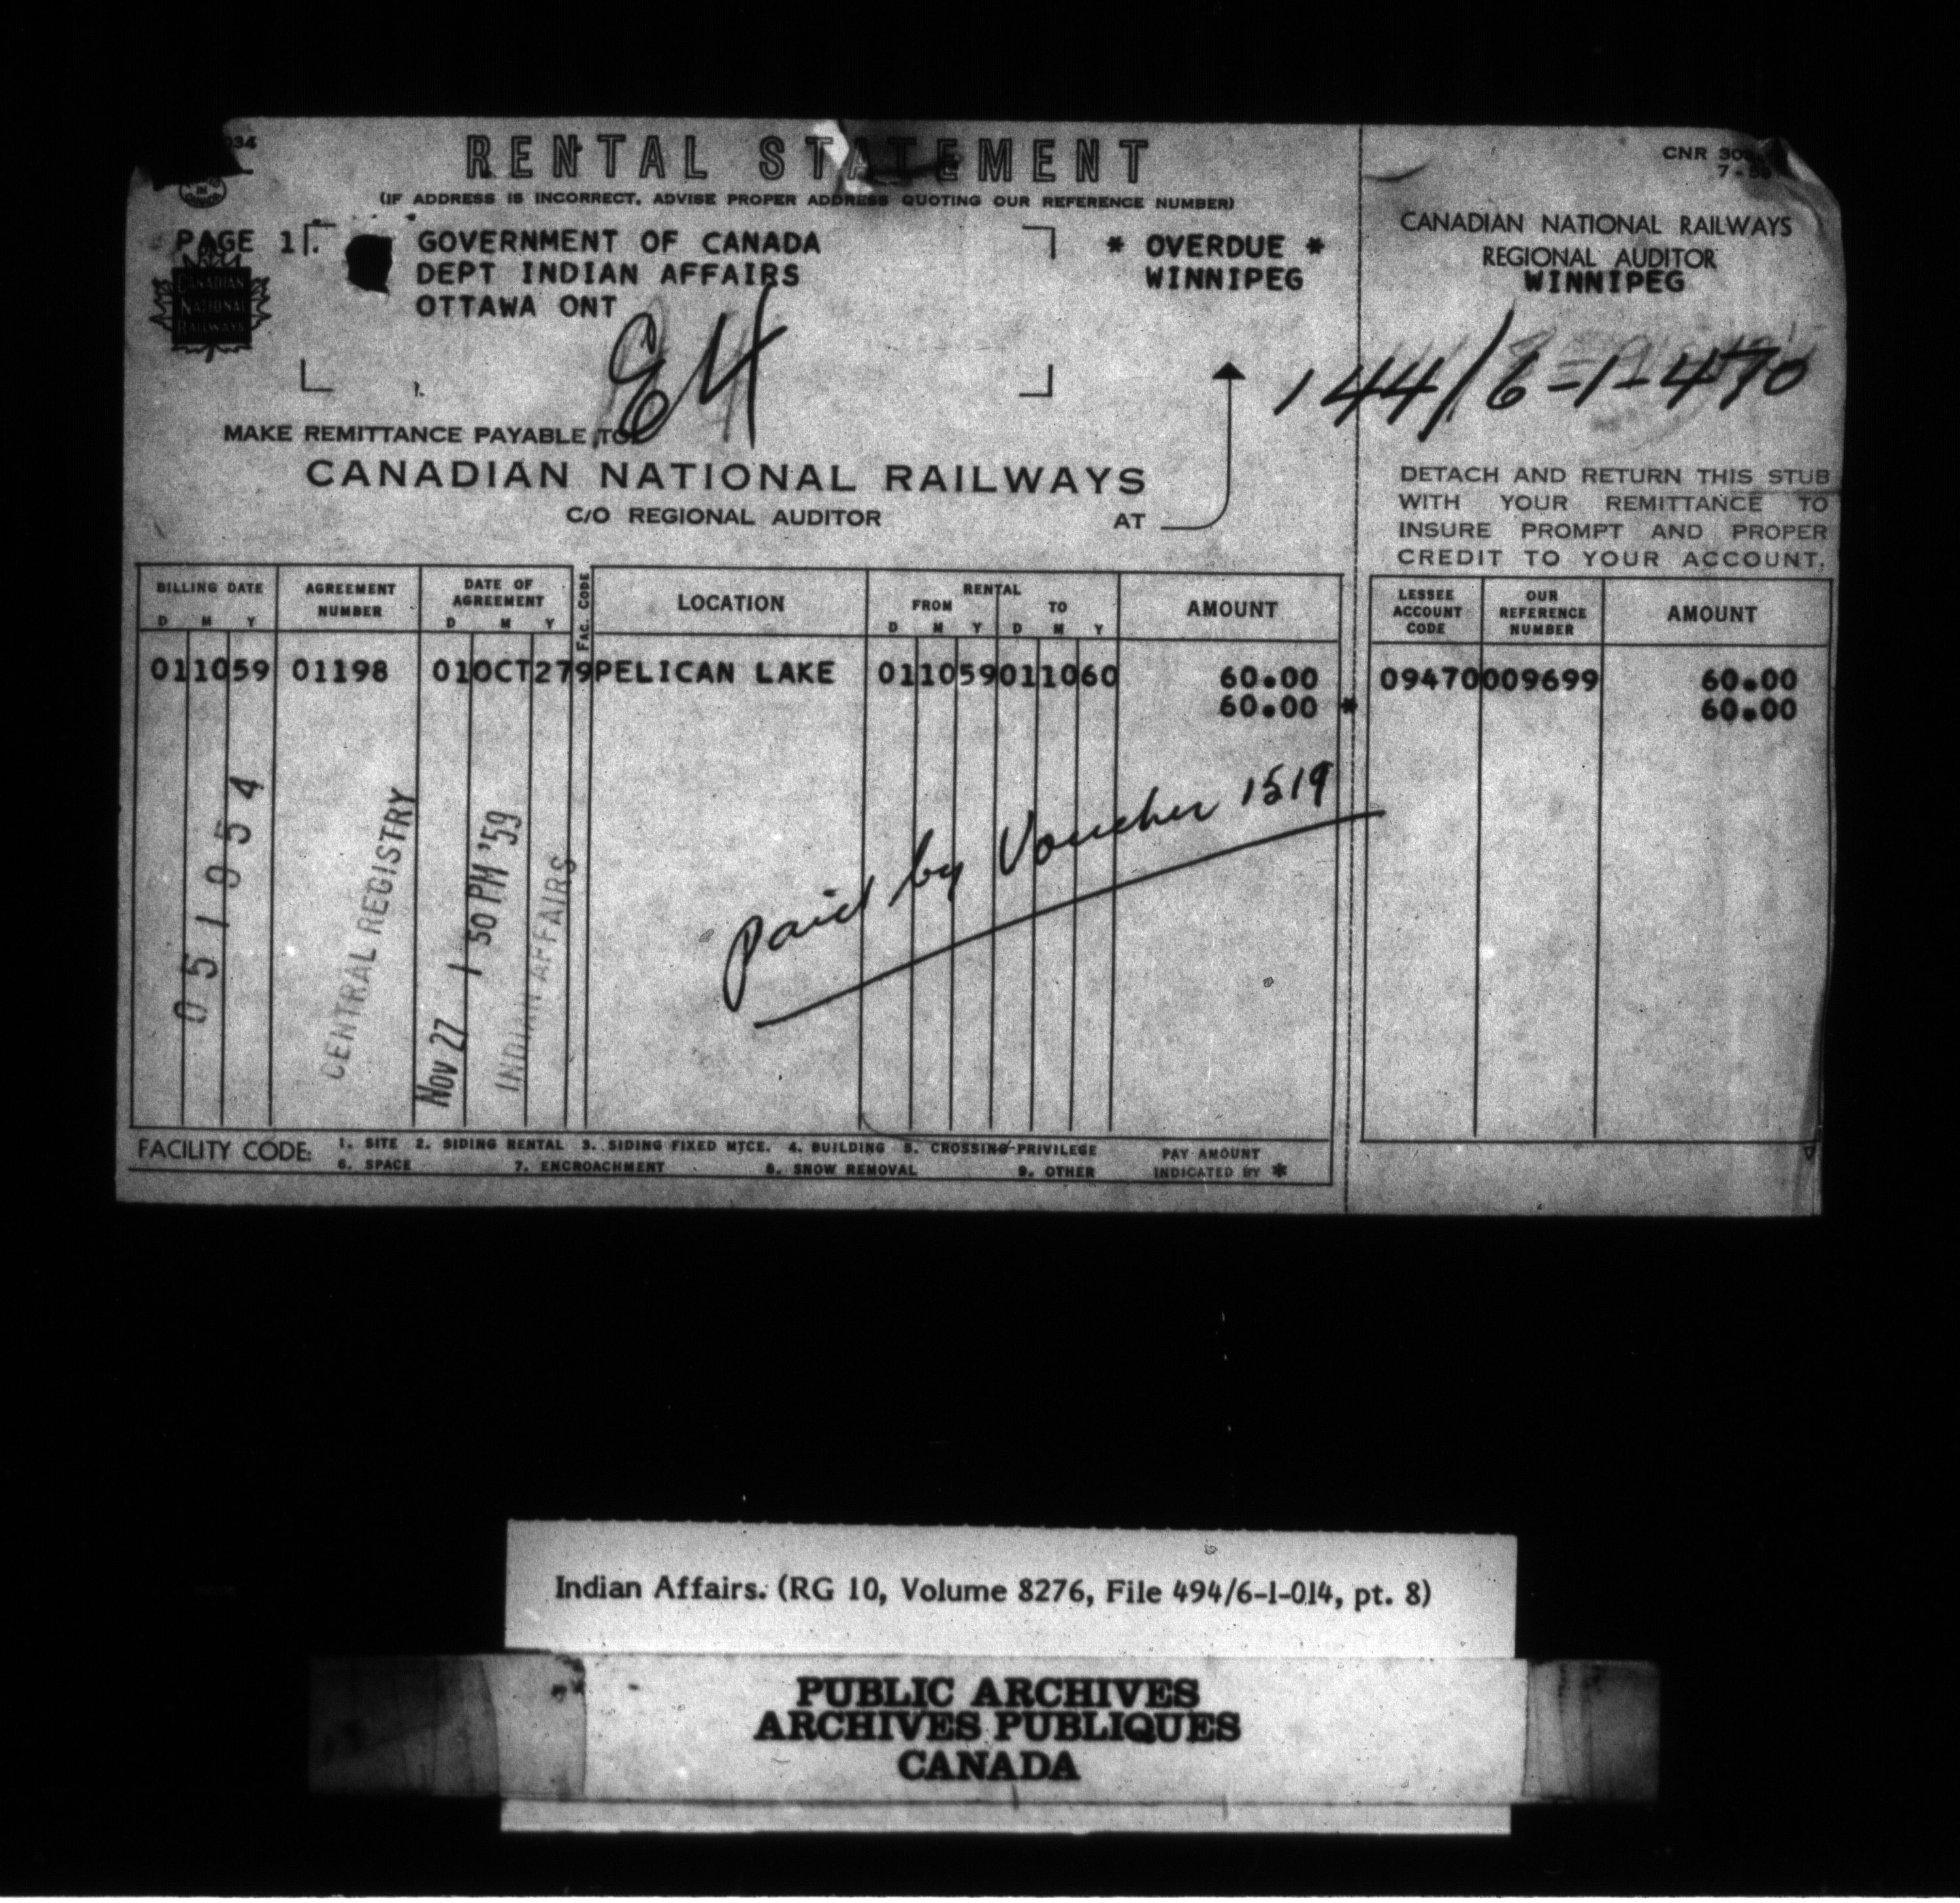 RENTAL STATEMENT
(IF ADDRESS IS INCORRECT, ADVISE PROPER ADDRESS QUOTING OUR REFERENCE NUMBER)
PAGE 1
CANADIAN
NATIONAL
RAILWAYS
GOVERNMENT OF CANADA
DEPT INDIAN AFFAIRS
OTTAWA ONT
* OVERDUE *
WINNIPEG
E4
MAKE REMITTANCE PAYABLE TO
CANADIAN NATIONAL RAILWAYS
C/O REGIONAL AUDITOR AT
CNR
CANADIAN NATIONAL RAILWAYS
REGIONAL AUDITOR
WINNIPEG
144/6-1-470
DETACH AND RETURN THIS STUB
WITH YOUR REMITTANCE TO
INSURE PROMPT AND PROPER
CREDIT TO YOUR ACCOUNT.
BILLING DATE D M Y AGREEMENT NUMBER DATE OF AGREEMENT D M Y FAC. CODE LOCATION RENTAL FROM D M Y TO D M Y AMOUNT LESSEE ACCOUNT CODE OUR REFERENCE NUMBER AMOUNT
011059 01198 01OCT279PELICAN LAKE 011059011060 60.00 09470009699 60.00
60.00 * 60.00
051954
CENTRAL REGISTRY
Nov 27 1 50 PM '59
INDIAN AFFAIRS
paid by Voucher 1519
FACILITY CODE: 1. SITE 2. SIDING RENTAL 3. SIDING FIXED MTCE. 4. BUILDING 5. CROSSING-PRIVILEGE PAY AMOUNT
6. SPACE 7. ENCROACHMENT 8. SNOW REMOVAL 9. OTHER INDICATED BY *
Indian Affairs. (RG 10, Volume 8276, File 494/6-1-014, pt. 8)
PUBLIC ARCHIVES
ARCHIVES PUBLIQUES
CANADA